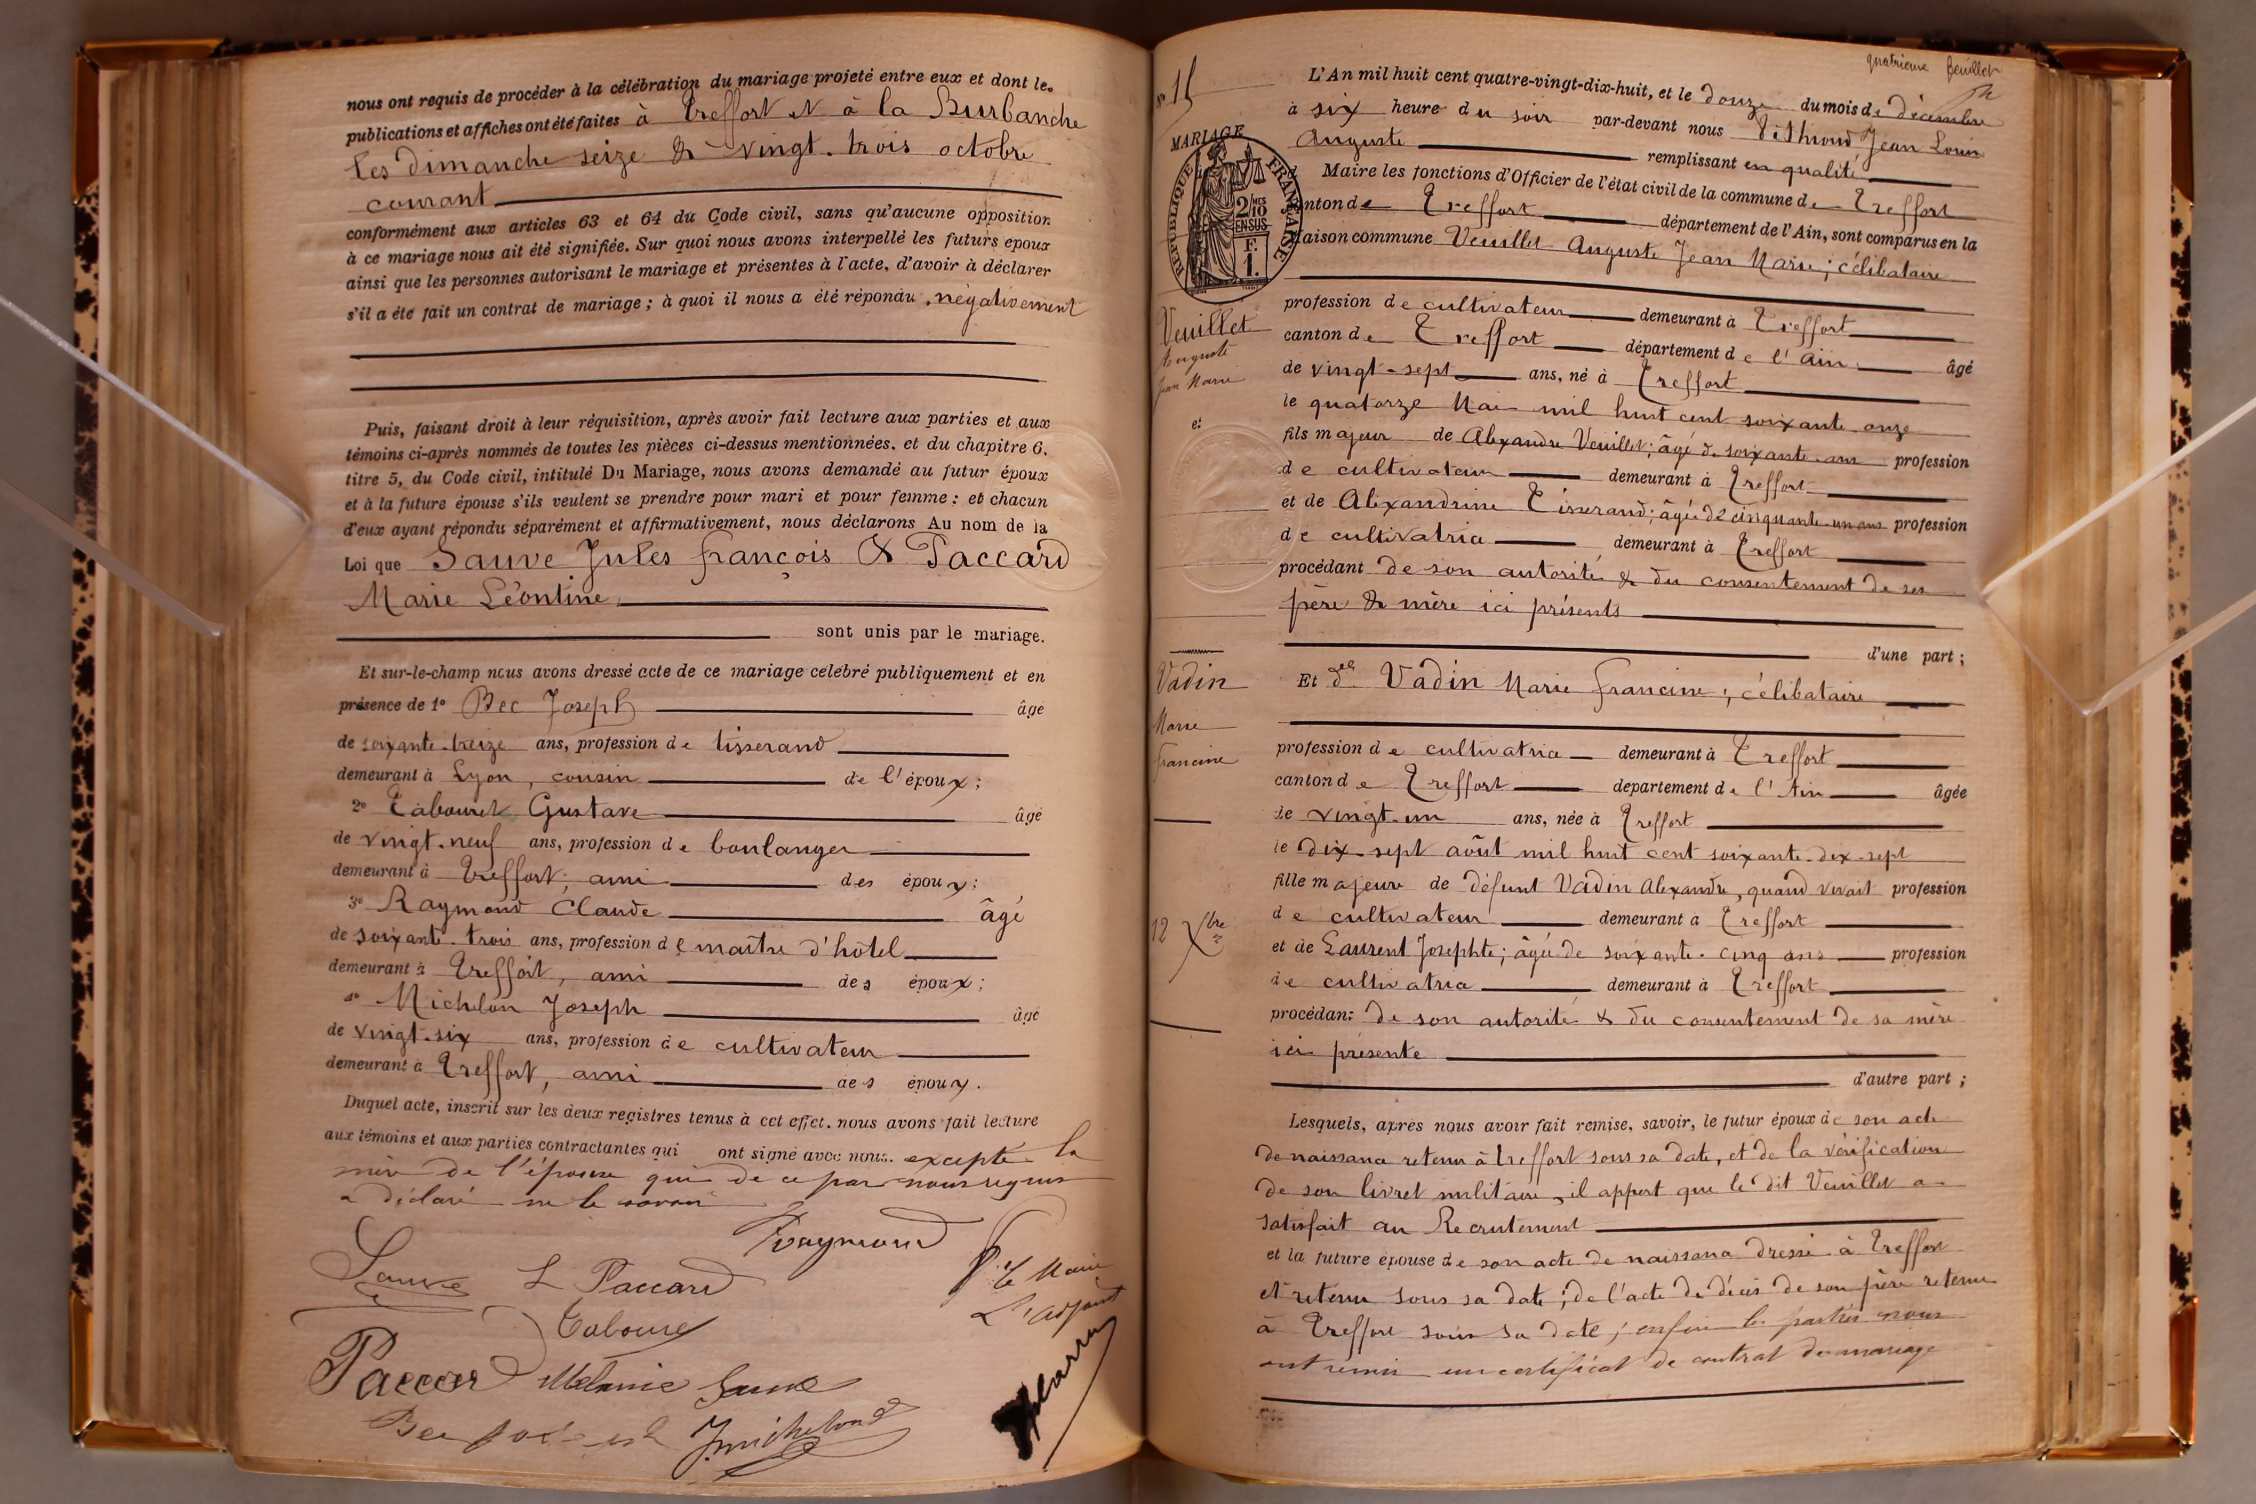 nous ont requis de procéder à la célébration du mariage projeté entre eux et dont les
publications et affiches ont été faites à Treffort et à la Burbanche
les dimanche seize & vingt-trois octobre
courant
conformément aux articles 63 et 64 du Code civil, sans qu'aucune opposition
à ce mariage nous ait été signifiée. Sur quoi nous avons interpellé les futurs epoux
ainsi que les personnes autorisant le mariage et présentes à l'acte, d'avoir à déclarer
s'il a été fait un contrat de mariage ; à quoi il nous a été répondu négativement
Puis, faisant droit à leur réquisition, après avoir fait lecture aux parties et aux
témoins ci-après nommés de toutes les pièces ci-dessus mentionnées, et du chapitre 6,
titre 5, du Code civil, intitulé Du Mariage, nous avons demandé au futur époux
et à la future épouse s'ils veulent se prendre pour mari et pour femme ; et chacun
d'eux ayant répondu séparément et affirmativement, nous déclarons Au nom de la
Loi que Sauve Jules François & Paccard
Marie Léontine
sont unis par le mariage.
Et sur-le-champ nous avons dressé acte de ce mariage célébré publiquement et en
présence de 1° Bec Joseph âgé
de soixante-treize ans, profession de tisserand
demeurant à Lyon, cousin de l'époux ;
2° Tabouret Gustave âgé
de vingt-neuf ans, profession de boulanger
demeurant à Treffort, ami des époux ;
3° Raymond Claude âgé
de soixante-trois ans, profession de maître d'hôtel
demeurant à Treffort, ami des époux ;
4° Michelon Joseph âgé
de vingt-six ans, profession de cultivateur
demeurant à Treffort, ami des époux.
Duquel acte, inscrit sur les deux registres tenus à cet effet, nous avons fait lecture
aux témoins et aux parties contractantes qui ont signé avec nous. excepté la
mère de l'épouse qui de ce par nous requis
a déclaré ne le savoir
Raymond
Sauve L Paccard
Pr Le Maire
L'adjoint
Tabouret
Paccard Mélanie Sauve
Bec Joseph J Michelond
quatrième feuillet
N° 15
L'An mil huit cent quatre-vingt-dix-huit, et le douze du mois de décembre
à six heure du soir par-devant nous Jean Louis
Auguste remplissant en qualité
de Maire les fonctions d'Officier de l'état civil de la commune de Treffort
canton de Treffort département de l'Ain, sont comparus en la
maison commune Veuillet Auguste Jean Marie ; célibataire
MARIAGE
RÉPUBLIQUE FRANÇAISE
2/10 MES
EN SUS
F.
1.
Veuillet
Auguste
Jean Marie
profession de cultivateur demeurant à Treffort
canton de Treffort département de l'Ain âgé
de vingt-sept ans, né à Treffort
le quatorze Mai mil huit cent soixante-onze
et
fils majeur de Alexandre Veuillet ; âgé de soixante ans profession
de cultivateur demeurant à Treffort
et de Alexandrine Tisserand ; âgée de cinquante-un ans profession
de cultivatrice demeurant à Treffort
procédant de son autorité & du consentement de ses
père & mère ici présents
d'une part ;
Vadin
Marie
Francine
Et delle Vadin Marie Francine ; célibataire
profession de cultivatrice demeurant à Treffort
canton de Treffort département de l'Ain âgée
de vingt-un ans, née à Treffort
le dix-sept août mil huit cent soixante-dix-sept
fille majeure de défunt Vadin Alexandre, quand vivait profession
de cultivateur demeurant à Treffort
12 Xbre
et de Laurent Josephte ; âgée de soixante-cinq ans profession
de cultivatrice demeurant à Treffort
procédant de son autorité & du consentement de sa mère
ici présente
d'autre part ;
Lesquels, après nous avoir fait remise, savoir, le futur époux de son acte
de naissance retenu à Treffort sous sa date, et de la vérification
de son livret militaire, il appert que le dit Veuillet a
satisfait au Recrutement
et la future épouse de son acte de naissance dressé à Treffort
et retenu sous sa date ; de l'acte de décès de son père retenu
à Treffort sous sa date ; enfin les parties nous
ont remis un certificat de contrat de mariage